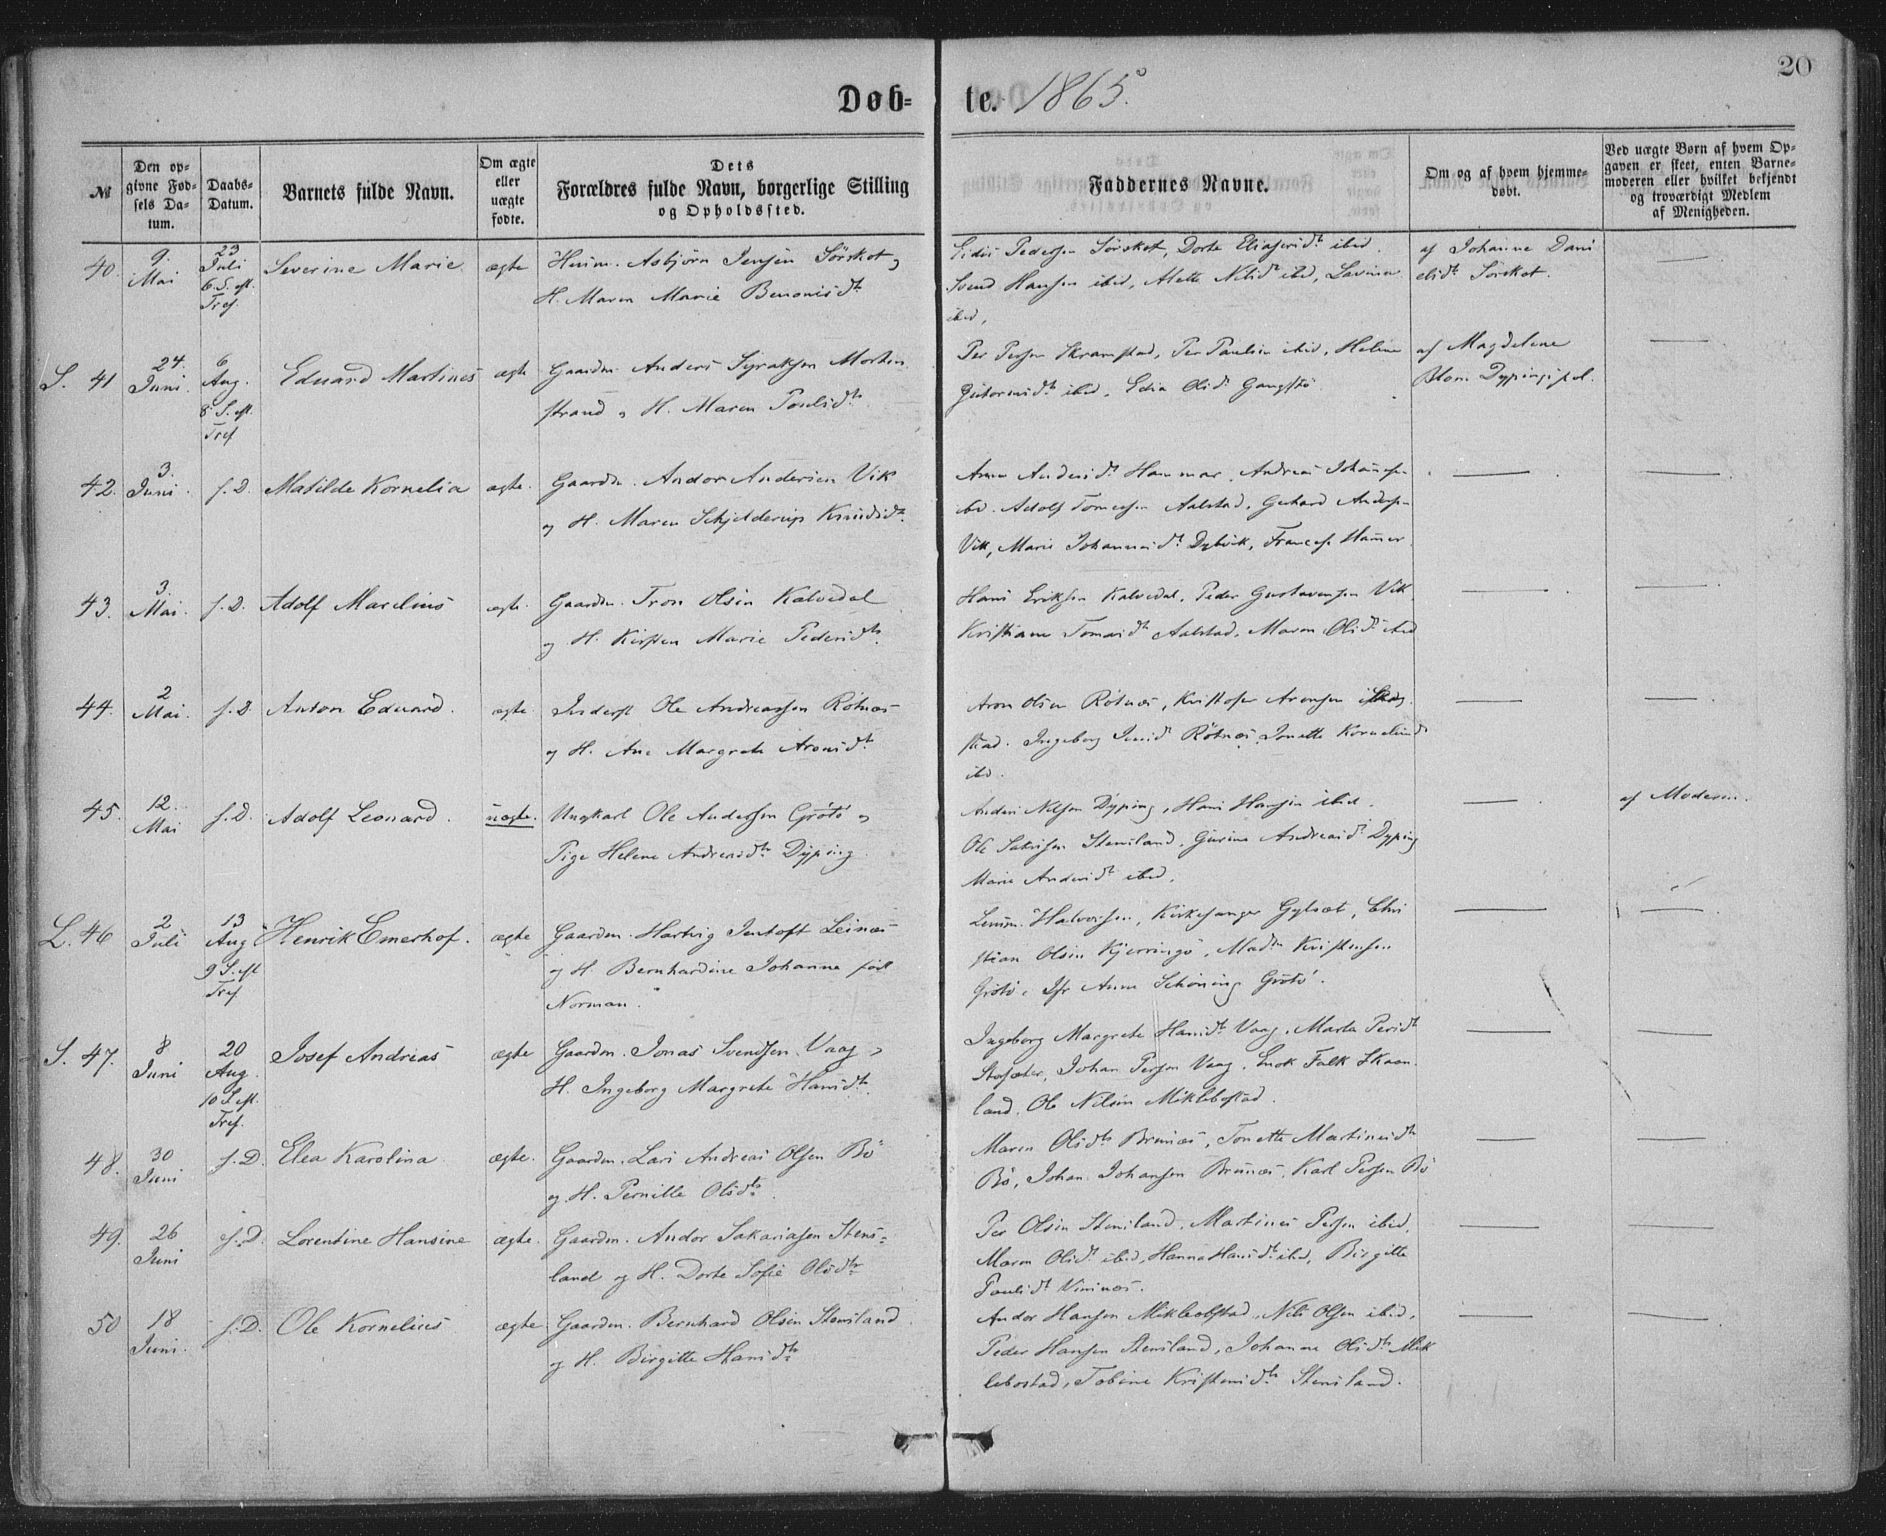 20
Døb- te. 1865.
№
Den op-
givne Fød-
sels Da-
tum.
Daabs-
Datum.
Barnets fulde Navn.
Om ægte
eller
uægte
fødte.
Dets
Forældres fulde Navn, borgerlige Stilling
og Opholdssted.
Faddernes Navne.
Om og af hvem hjemme-
døbt.
Ved uægte Børn af hvem Op-
gaven er skeet, enten Barne-
moderen eller hvilket bekjendt
og troværdigt Medlem
af Menigheden.
40. 9. Mai
23 Juli 6. S. eft. Tref.
Severine Marie
ægte
Husm. Asbjørn Jensen Sörskot og
H. Maren Marie Benonisdt.
Pedersen Sörskot, Dorte Eliasensdt. ibid.
Svend Hansen ibid, Mette Nilsdt ibid, Lavina
ibid,
af Johanne Dani
elsdt. Sörskot.
S. 41 24. Juni.
6 Aug. 8 S. eft. Tref
Eduard Martines
ægte
Gaardm. Anders Syraksen Morten
strand og H. Maren Poulsdt.
Per Persen Skramstad, Per Paulsen ibid, Heline
Gutormsdt. ibid, Edia Olsdt. Gangstö
af Magdelene
Blom Dypingspol.
42. 3. Juni.
s. D.
Matilde Kornelia
ægte.
Gaardm. Andor Andersen Vik
og H. Maren Schjelderup Knudsdt.
Anne Andersdt. Hammar, Andreas Johansen
ibd. Adolf Tomesen Aalstad, Gerhard Andersen
Vik, Marie Johannesdt. Dybvik, Hammer.
43. 3. Mai.
s. D.
Adolf Marelius
ægte.
Gaardm. Tron Olsen Kalvedal
og H. Kirsten Marie Pedersdt.
Hans Eriksen Kalvedal, Peder Gustavensen Vik
Kristiane Tomasdt. Aalstad, Maren Olsdt. ibid
44. 2 Mai.
s. D.
Anton Eduard.
ægte.
Inderst Ole Andreassen Rötnes
og H. Ane Margrete Aronsdt.
Aron Olsen Rötnes, Kristofer Aronsen
stad. Ingeborg Rötnes, Jonette Korneliusdt
ibd.
45. 12. Mai
s. D.
Adolf Leonard.
uægte.
Ungkarl Ole Andersen Grötö og
Pige Helene Andreasdt. Dyping.
Anders Nilsen Dyping, Hans Hansen ibid.
Ole Sakrisen Stensland, Gurine Andreasdt. Dyping
Marie Andersdt. ibid.
af Moderen.
L. 46 2 Juli
13 Aug 9 S. eft Tref.
Henrik Emerhof.
ægte
Gaardm. Hartvig Jentoft Leines
og H. Bernhardine Johanne föd
Norman.
Halvorsen, Kirkesanger Gylset, Chri
stian Olsen Kjerringö, Kristensen
Grötö, Jfr Anne Schöning Grötö.
S. 47. 8 Juni
20 Aug. 10 S. eft. Tref.
Josef Andreas
ægte
Gaardm. Jonas Svendsen Vaag og
H. Ingeborg Margrete Hansdt.
Ingeborg Margrete Hansdt. Vaag, Marta Persdt
Storsæter, Johan Persen Vaag, Enok Falk Skaan
land, Ole Nilsen Miklebostad.
48. 30 Juni
s. D.
Elea Karolina
ægte.
Gaardm. Lars Andreas Olsen Bö
og H. Pernille Olsdt.
Maren Olsdt. Brunæs, Jonette Martinusdt
Bö, Johan Johansen Brunæs, Karl Persen Bö
49. 26 Juni
s. D.
Lorentine Hansine
ægte.
Gaardm. Andor Sakariasen Stens-
land og H. Dorte Sofie Olsdt.
Per Olsen Stensland, Martines Persen ibid,
Maren Olsdt. ibid, Hanna Hansdt. ibid, Birgitte
Paulsdt
50 18 Juni.
s. D.
Ole Kornelius
ægte
Gaardm. Bernhard Olsen Stensland
og H. Birgitte Hansdt.
Andor Hansen Miklebostad, Nils Olsen ibid,
Peder Hansen Stensland, Johanne Olsdt. Mik
lebostad, Tobine Kristensdt. Stensland.